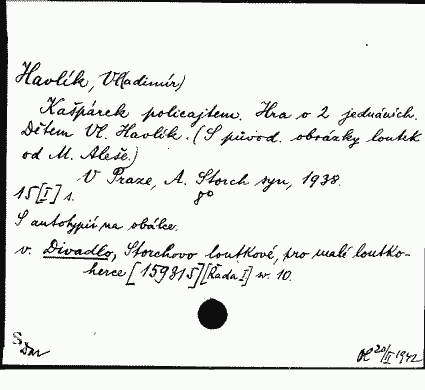 Havlík, Vl(adimír)
Kašpárek policajtem. Hra o 2 jednáních.
Dětem Vl. Havlík. (S původ. obrázky loutek
od M. Aleše.)
V Praze, A. Storch syn, 1938.
15 [I] s. 8°
S autotypií na obálce.
v. Divadlo, Storchovo loutkové, pro malé loutko-
herce [159315] [Řada I] sv. 10.
S Dar
20/II 1942